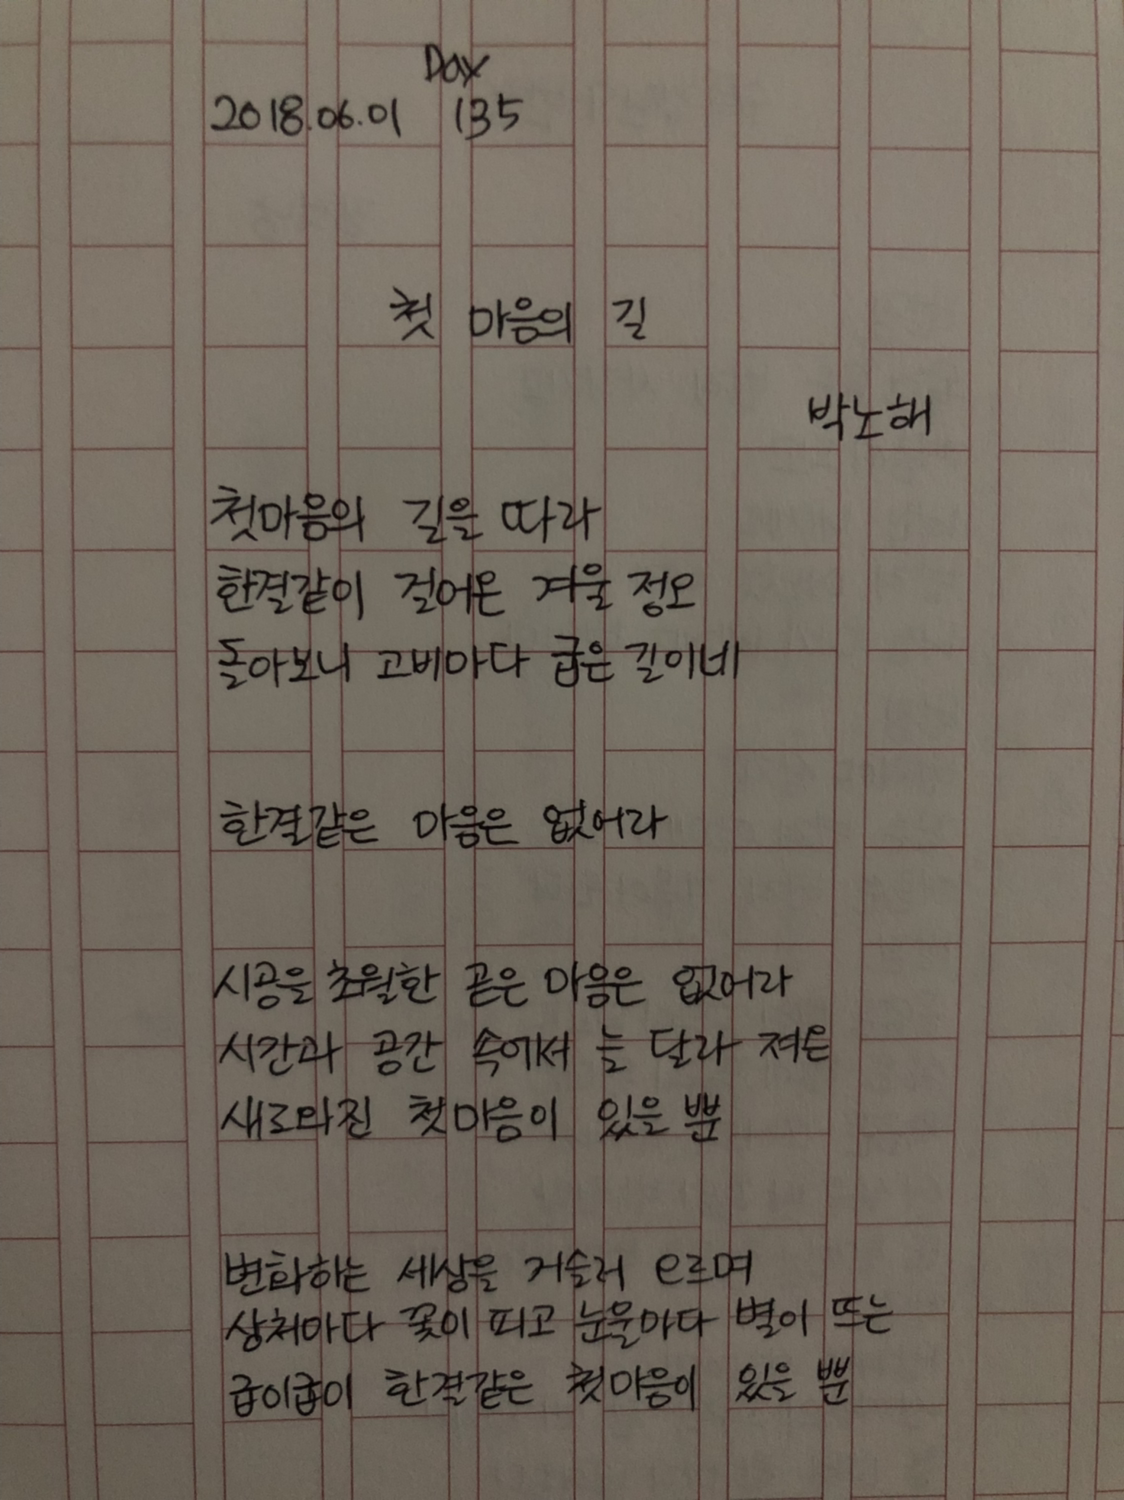 Day
2018.06.01 135
첫 마음의 길
박노해
첫마음의 길을 따라
한결같이 걸어온 겨울 정오
돌아보니 고비마다 굽은 길이네
한결같은 마음은 없어라
시공을 초월한 곧은 마음은 없어라
시간과 공간 속에서 늘 달라 져온
새로와진 첫마음이 있을 뿐
변화하는 세상을 거슬러 오르며
상처마다 꽃이 피고 눈물마다 별이 뜨는
굽이굽이 한결같은 첫마음이 있을 뿐